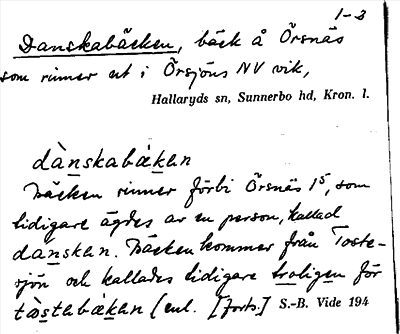 1-3
Danskabäcken, bäck å Örsnäs
som rinner ut i Örsjöns NV vik,
Hallaryds sn, Sunnerbo hd, Kron. l.
dànskabækan
Bäcken rinner förbi Örsnäs 1⁵, som
tidigare ägdes av en person, kallad
danskan. Bäcken kommer från Toste-
sjön och kallades tidigare troligen för
tòstabækan (enl. [forts.] S.-B. Vide 194